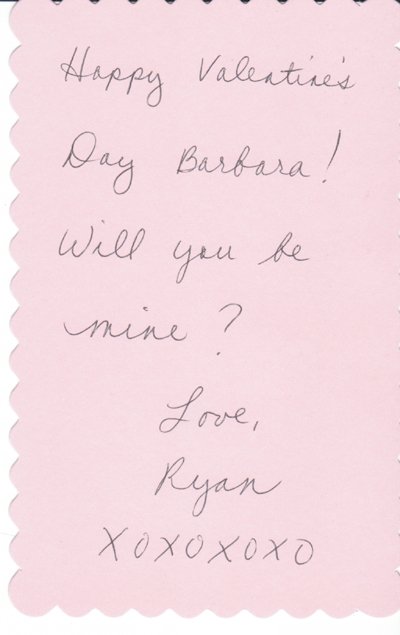 Happy Valentine's
Day Barbara!
Will you be
mine?
Love,
Ryan
XOXOXOXO